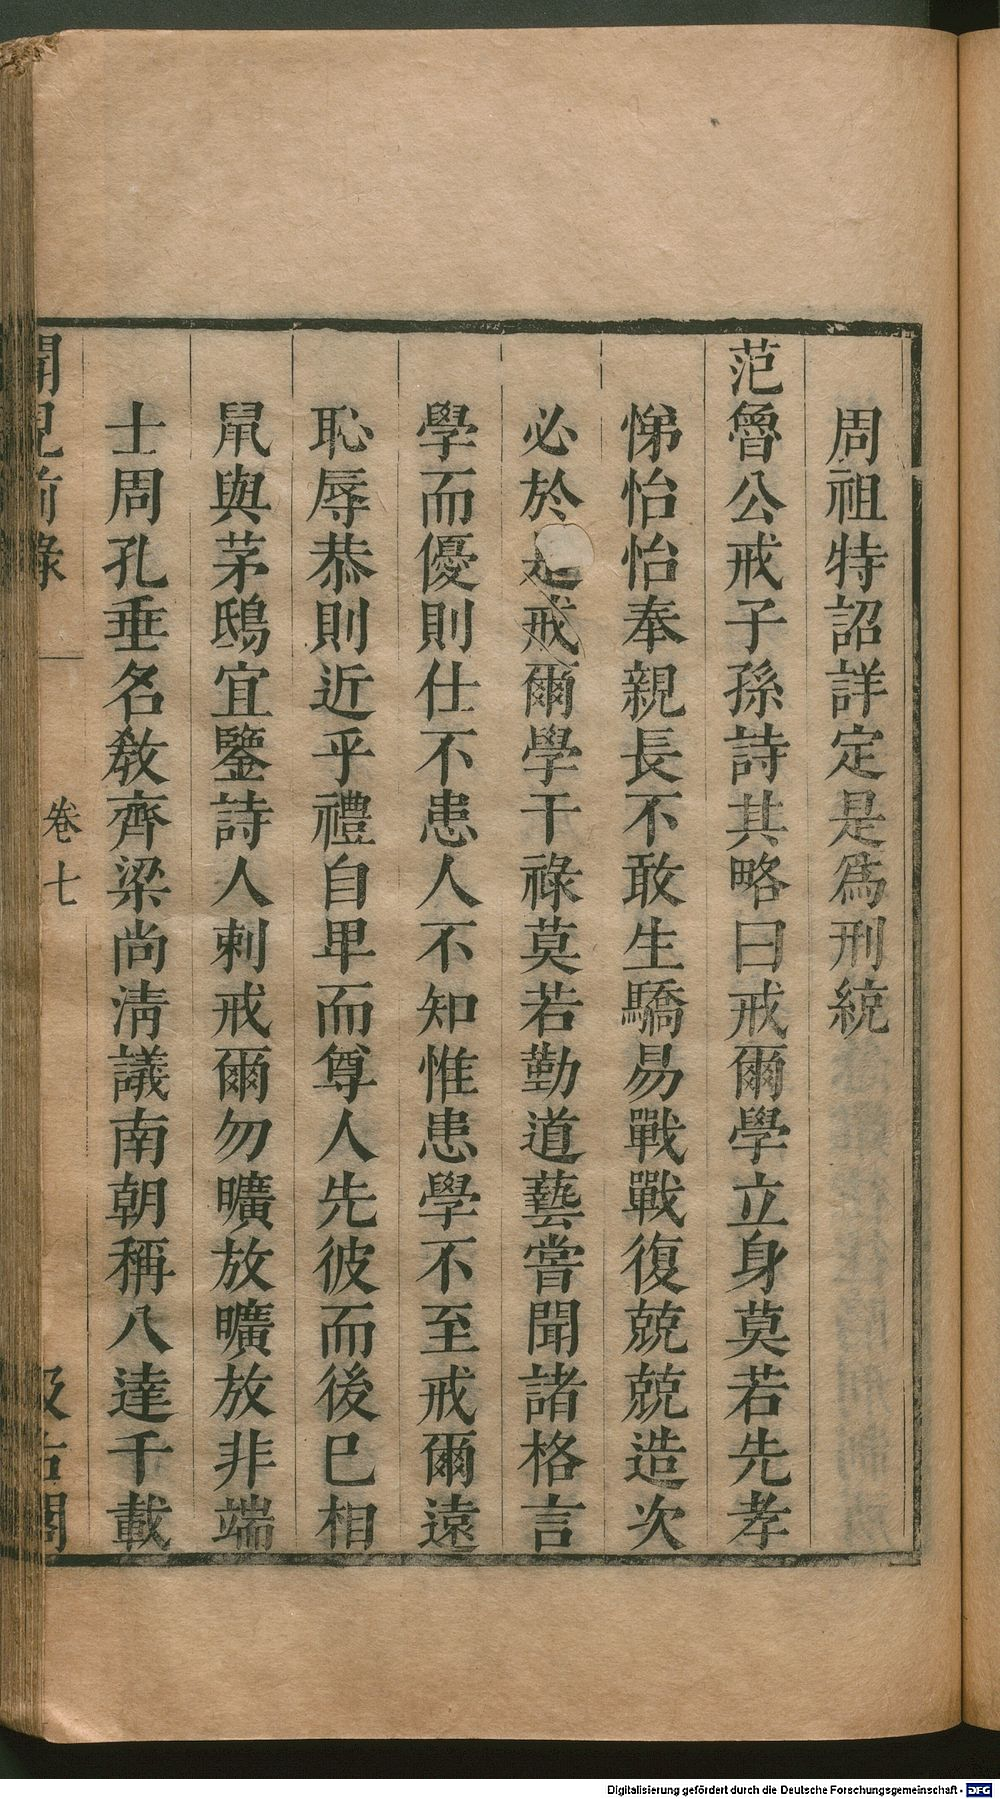 周祖特詔詳定是爲刑統
范魯公戒子孫詩其略曰戒爾學立身莫若先孝
悌怡怡奉親長不敢生驕易戰戰復兢兢造次
必於是戒爾學干祿莫若勤道藝嘗聞諸格言
學而優則仕不患人不知惟患學不至戒爾遠
恥辱恭則近乎禮自卑而尊人先彼而後已相
鼠與茅鴟宜鑒詩人刺戒爾勿曠放曠放非端
士周孔垂名敎齊梁尚淸議南朝稱八達千載
聞見前錄 卷七 汲古閣
Digitalisierung gefördert durch die Deutsche Forschungsgemeinschaft - DFG